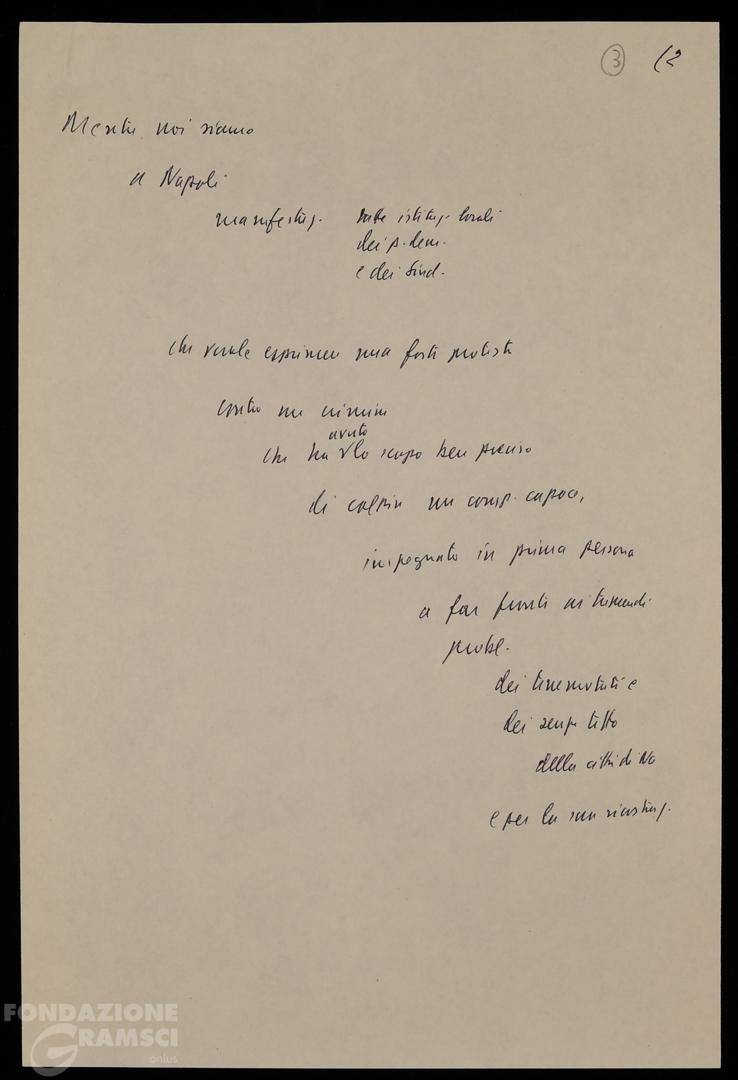 3 (2
Mentre noi siamo
a Napoli
manifestaz. delle istituz. locali
dei p. dem.
e dei sind.
che vuole esprimere una forte protesta
contro un crimine
avuto
che ha lo scopo ben preciso
di colpire un comp. capace,
impegnato in prima persona
a far fronte ai tremendi
probl.
dei terremotati e
dei senza tetto
della città di Na
e per la sua ricostruz.
FONDAZIONE
GRAMSCI
onlus